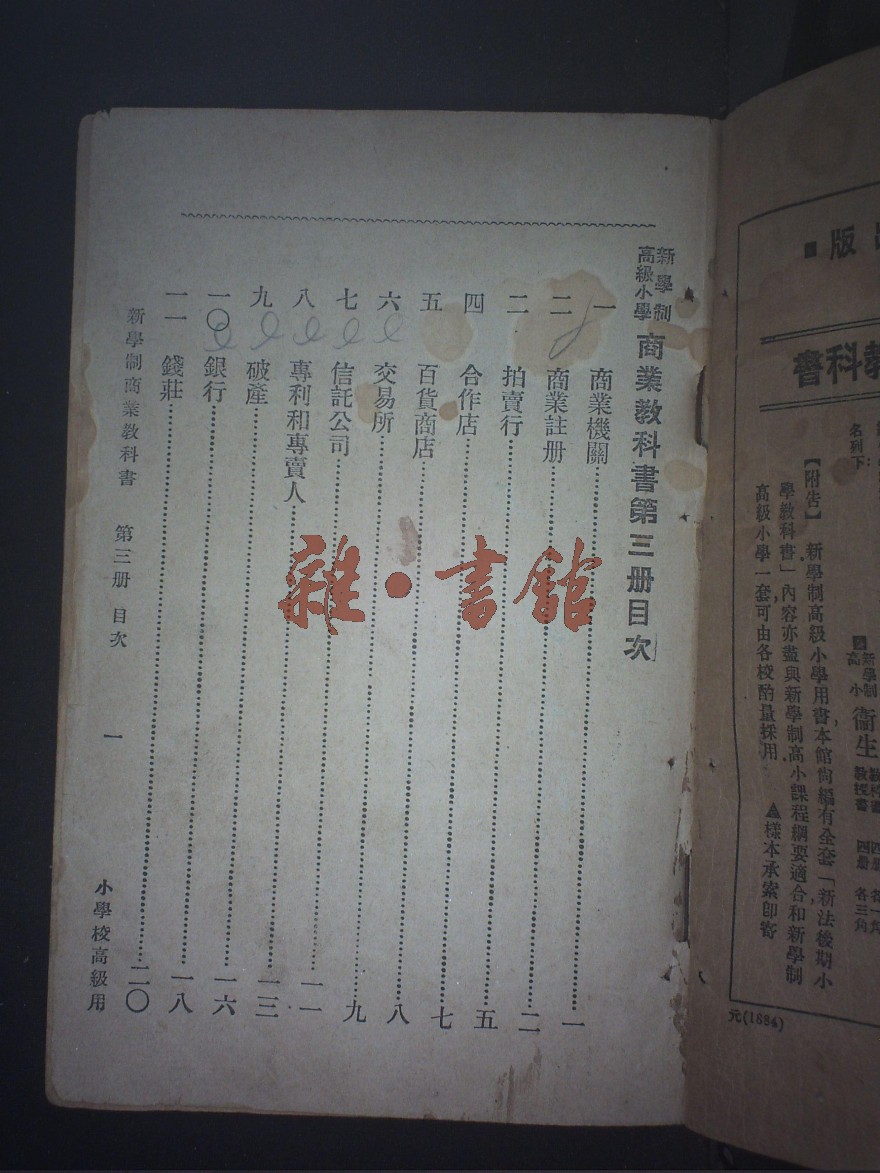 新學制
高級小學
商業教科書第三册目次
一 商業機關 一
二 商業註册 二
三 拍賣行 五
四 合作店 七
五 百貨商店 八
六 交易所 九
七 信託公司 一一
八 專利和專賣人 一三
九 破產 一六
一〇 銀行 一八
一一 錢莊 二〇
新學制商業教科書 第三册 目次 一 小學校高級用
雜·書館
版
教科書
名列下:
【附告】 新學制高級小學用書本館尚編有全套「新法後期小
學教科書」內容亦盡與新學制高小課程綱要適合和新學制
高級小學一套可由各校酌量採用 ▲樣本承索即寄
新學制
高小
衞生
教科書 四册 各一角
教授書 四册 各三角
元(1884)